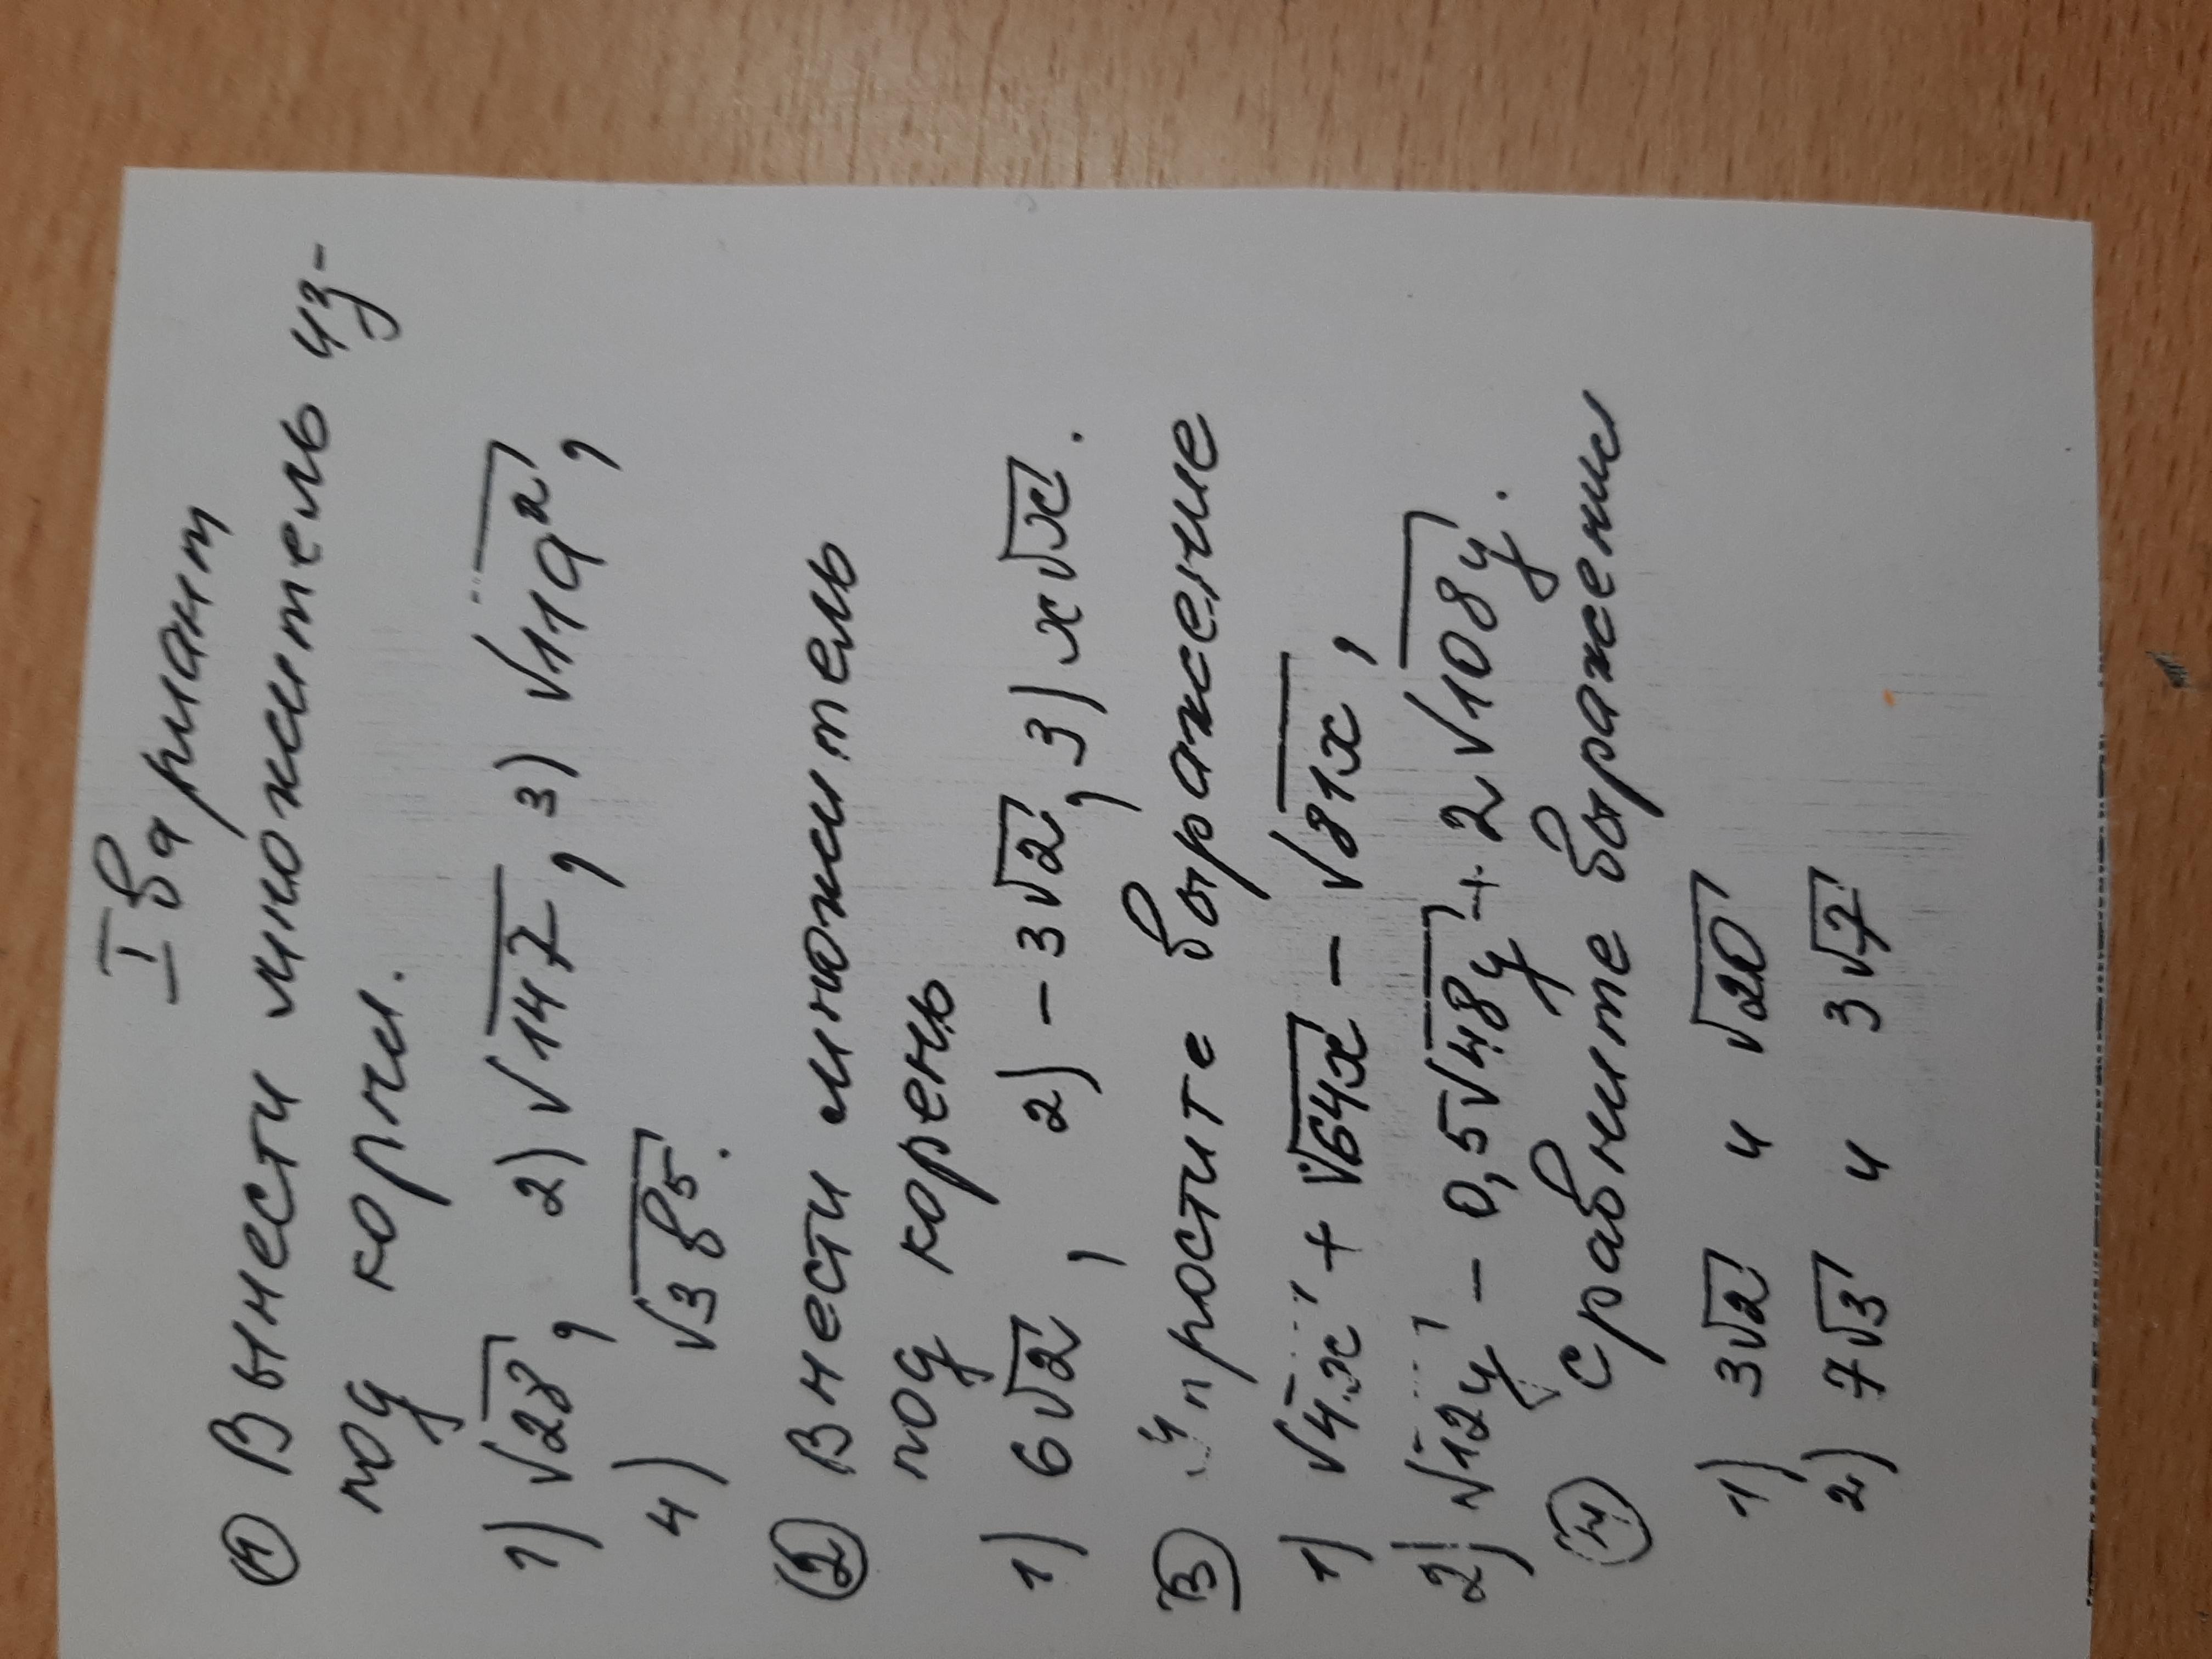 I вариант
① Вынести множитель из-
под корня.
1) √28, 2) √147, 3) √11a²,
4) √3b⁵.
② Внести множитель
под корень
1) 6√2, 2) -3√2, 3) x√x.
③ Упростите выражение
1) √4x + √64x - √81x,
2) √12y - 0,5√48y + 2√108y.
④ Сравните выражения
1) 3√2 и √20
2) 7√3 и 3√7